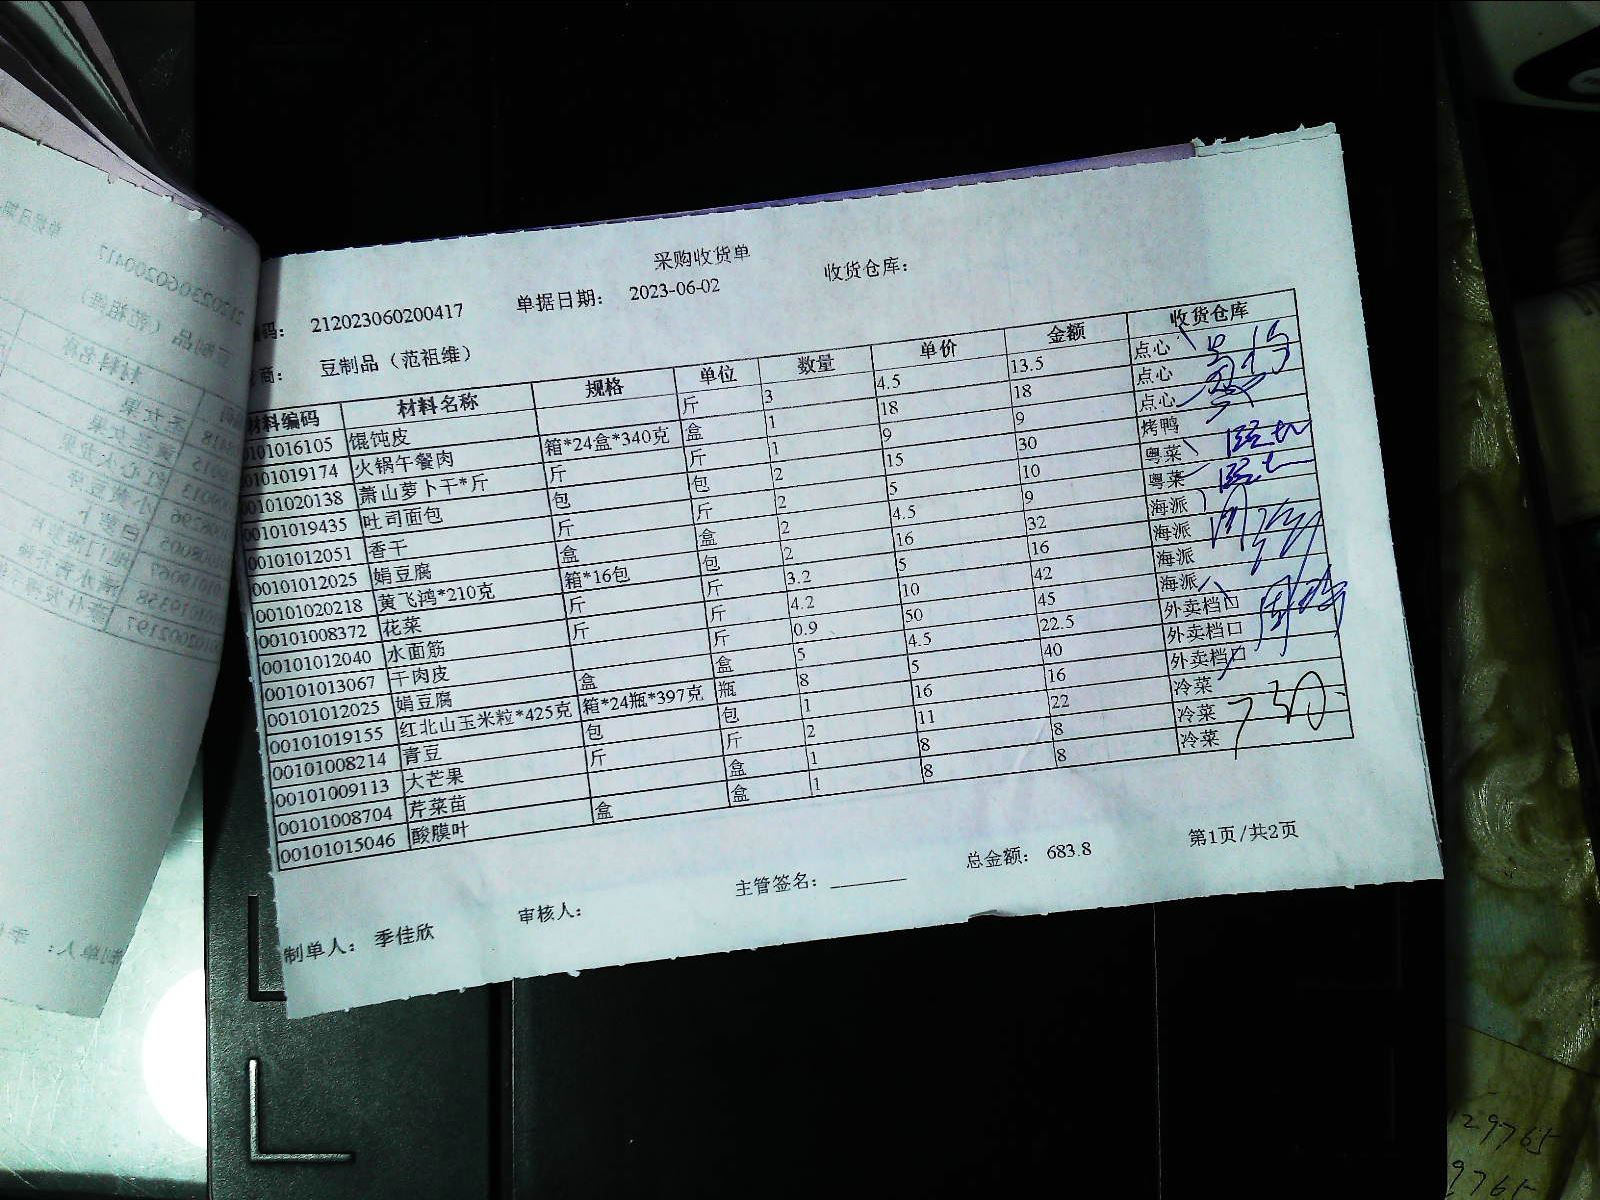 采购收货单
编码： 212023060200417 单据日期： 2023-06-02 收货仓库：
商： 豆制品（范祖维）
材料编码 材料名称 规格 单位 数量 单价 金额 收货仓库
0101016105 馄饨皮 斤 3 4.5 13.5 点心
0101019174 火锅午餐肉 箱*24盒*340克 盒 1 18 18 点心
00101020138 萧山萝卜干*斤 斤 斤 1 9 9 点心
00101019435 吐司面包 包 包 2 15 30 烤鸭
00101012051 香干 斤 斤 2 5 10 粤菜
00101012025 娟豆腐 盒 盒 2 4.5 9 粤菜
00101020218 黄飞鸿*210克 箱*16包 包 2 16 32 海派
00101008372 花菜 斤 斤 3.2 5 16 海派
00101012040 水面筋 斤 斤 4.2 10 42 海派
00101013067 干肉皮 斤 0.9 50 45 海派
00101012025 娟豆腐 盒 盒 5 4.5 22.5 外卖档口
00101019155 红北山玉米粒*425克 箱*24瓶*397克 瓶 8 5 40 外卖档口
00101008214 青豆 包 包 1 16 16 外卖档口
00101009113 大芒果 斤 斤 2 11 22 冷菜
00101008704 芹菜苗 盒 1 8 8 冷菜
00101015046 酸膜叶 盒 盒 1 8 8 冷菜
总金额： 683.8 第1页/共2页
制单人： 季佳欣 审核人： 主管签名：